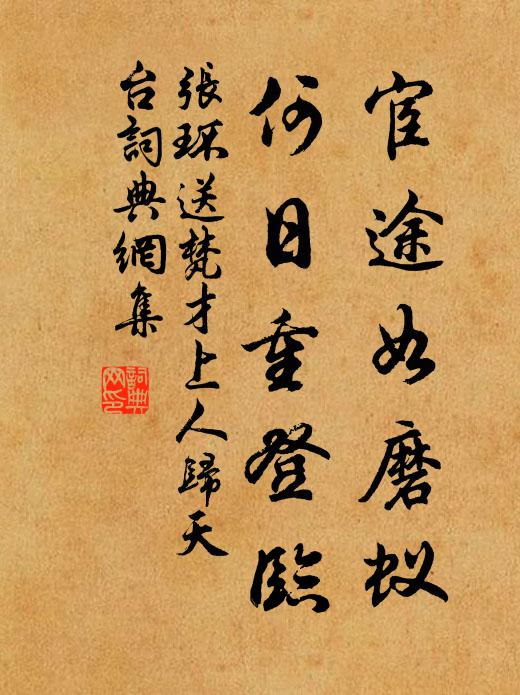 宦途如磨蚁
何日重登臨
張環送梵才上人歸天
台詞典網集
詞典網印